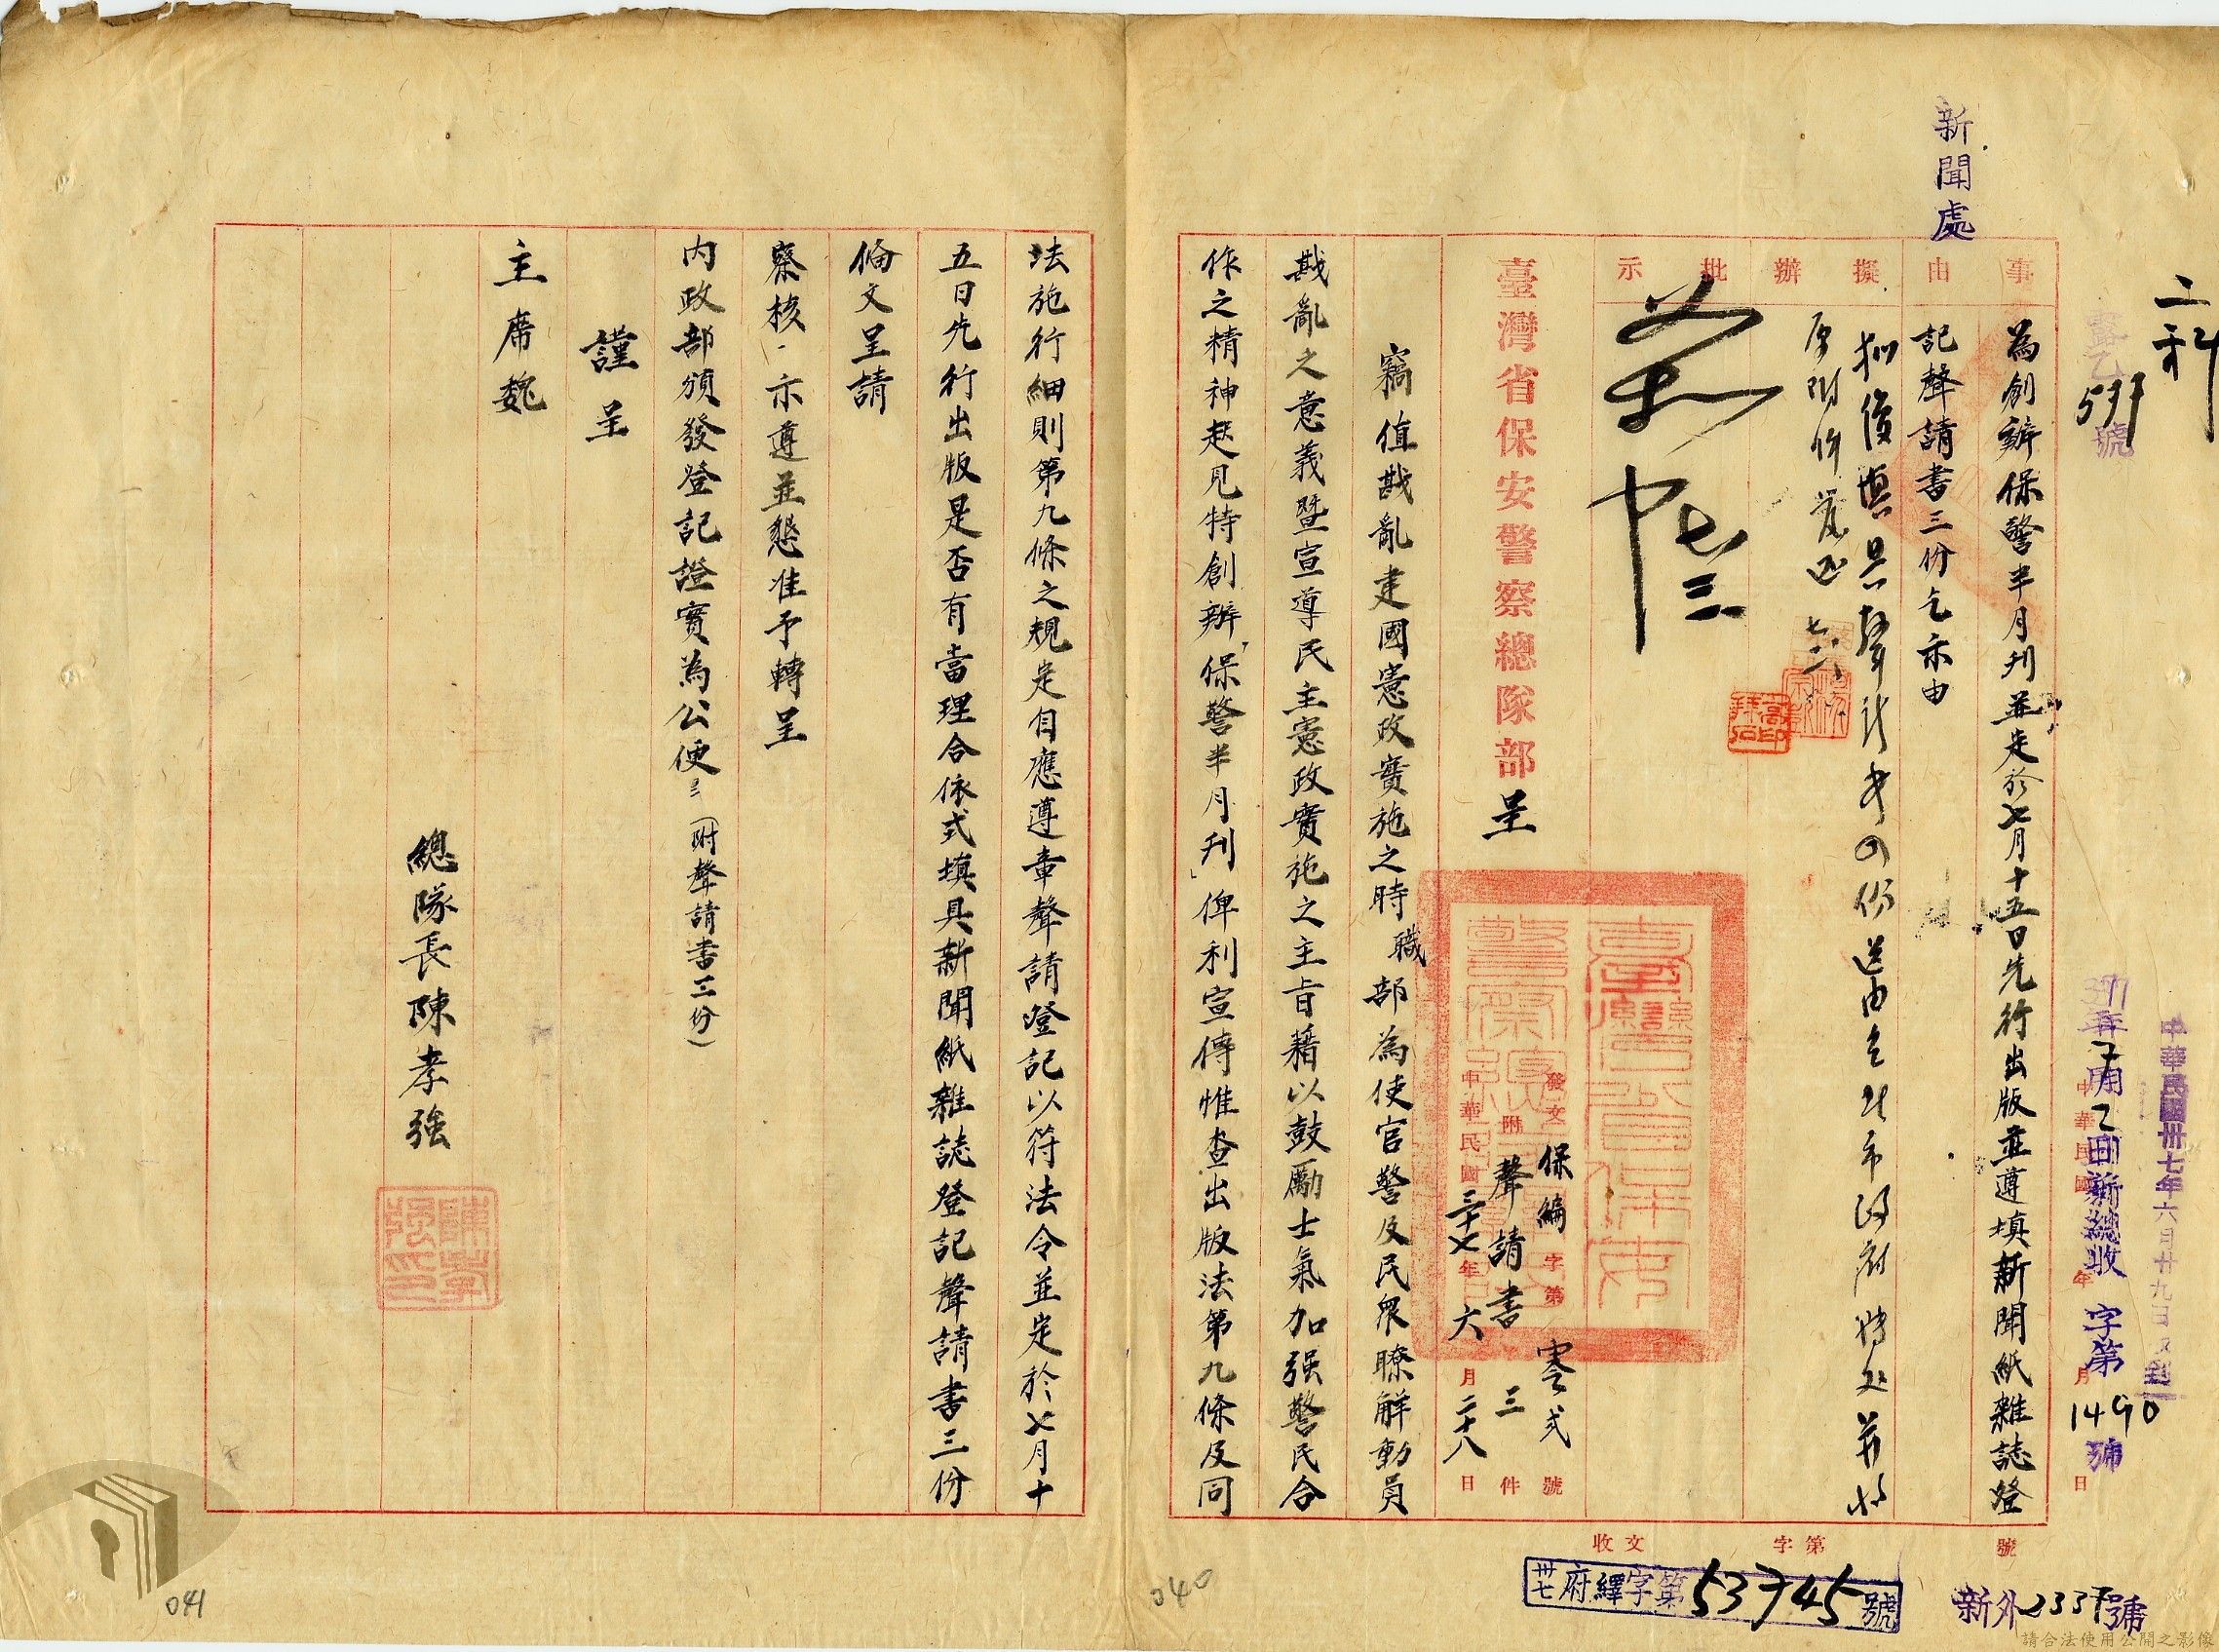 新聞處
二科
號
中華民國卅七年六月廿九日
37年7月2日新總收字第1490號
中華民國 年 月 日
事由
為創辦保警半月刊並定於七月十五日先行出版並遵填新聞紙雜誌登
記聲請書三份乞示由
擬辦
批示
臺灣省保安警察總隊部呈
發文 保編 字第 零弍 號
附 聲請書 三 件
中華民國 三十七 年 六 月 二十八 日
竊值戡亂建國憲政實施之時職部為使官警及民眾瞭解動員
戡亂之意義暨宣導民主憲政實施之主旨藉以鼓勵士氣加强警民合
作之精神起見特創辦「保警半月刊」俾利宣傳惟查出版法第九條及同
法施行細則第九條之規定自應遵章聲請登記以符法令並定於七月十
五日先行出版是否有當理合依式填具新聞紙雜誌登記聲請書三份
備文呈請
察核·示遵並懇准予轉呈
內政部頒發登記證實為公便（附聲請書三份）
謹呈
主席魏
總隊長陳孝強
收文 字第 號
卅七府繹字第53745號
新外2337號
040
041
請合法使用公開之影像